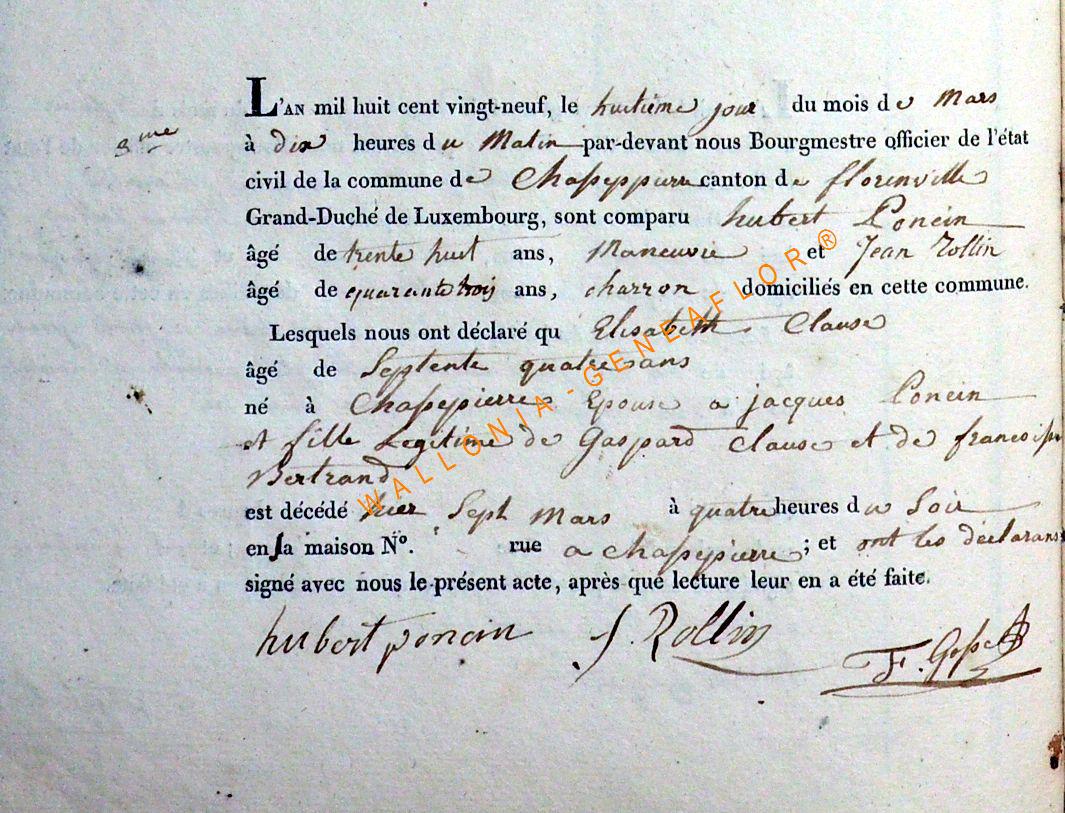 L'AN mil huit cent vingt-neuf, le huitième jour du mois de Mars
3me
à dix heures du Matin par-devant nous Bourgmestre officier de l'état
civil de la commune de Chassepierre canton de florenville
Grand-Duché de Luxembourg, sont comparu hubert Poncin
âgé de trente huit ans, Maneuvre et Jean Rollin
âgé de quarante trois ans, charron domiciliés en cette commune.
Lesquels nous ont déclaré qu Elisabeth Clause
âgé de Septente quatre ans
né à Chassepierre Epouse a jacques Poncin
et fille Legitime de Gaspard Clause et de francoise
Bertrand
est décédé hier Sept Mars à quatre heures du Soir
en sa maison N°. rue a chassepierre ; et ont les déclarans
signé avec nous le présent acte, après que lecture leur en a été faite.
hubert poncin J. Rollin F.
WALLONIA-GENEAFLOR®